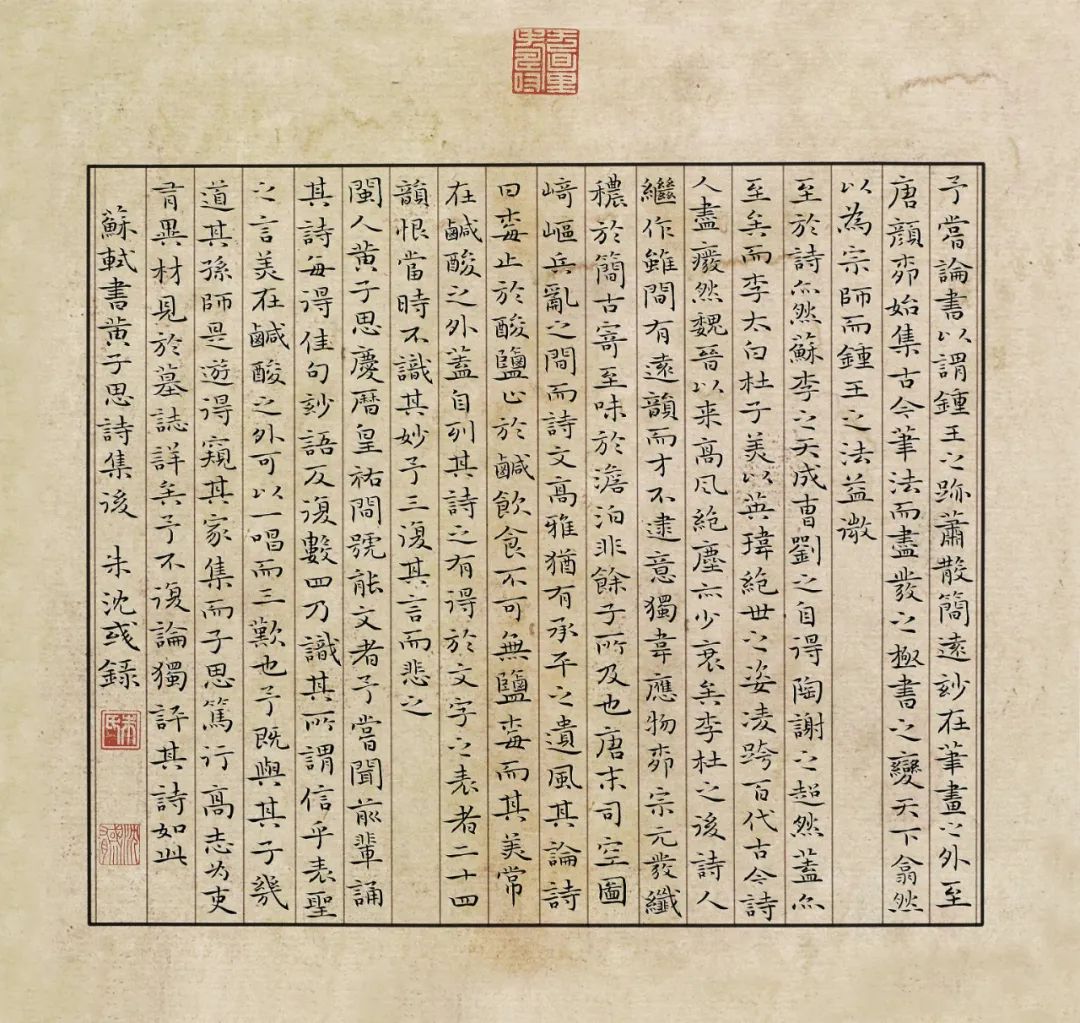 予嘗論書以謂鍾王之跡蕭散簡遠妙在筆畫之外至
唐顏柳始集古今筆法而盡發之極書之變天下翕然
以為宗師而鍾王之法益微
至於詩亦然蘇李之天成曹劉之自得陶謝之超然蓋亦
至矣而李太白杜子美以英瑋絕世之姿凌跨百代古今詩
人盡廢然魏晉以来高風絕塵亦少衰矣李杜之後詩人
繼作雖間有遠韻而才不逮意獨韋應物柳宗元發纖
穠於簡古寄至味於澹泊非餘子所及也唐末司空圖
崎嶇兵亂之間而詩文高雅猶有承平之遺風其論詩
曰梅止於酸鹽止於鹹飲食不可無鹽梅而其美常
在鹹酸之外蓋自列其詩之有得於文字之表者二十四
韻恨當時不識其妙予三復其言而悲之
閩人黃子思慶曆皇祐間號能文者予嘗聞前輩誦
其詩每得佳句妙語反復數四乃識其所謂信乎表聖
之言美在鹹酸之外可以一唱而三歎也予既與其子幾
道其孫師是遊得窺其家集而子思篤行高志為吏
有異材見於墓誌詳矣予不復論獨評其詩如此
蘇軾書黃子思詩集後 朱沈彧錄
朱氏